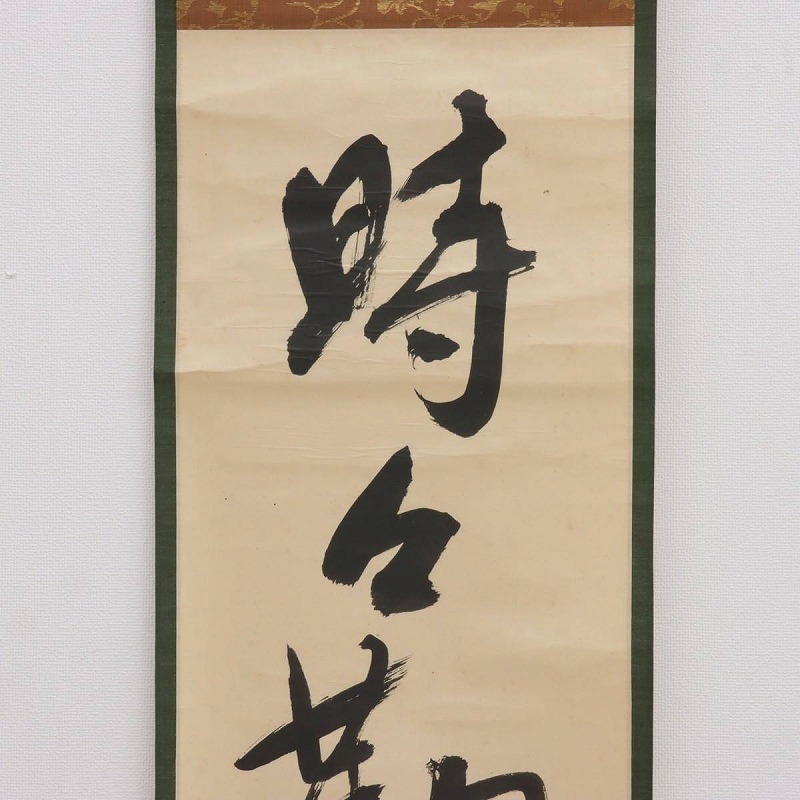 時々勤